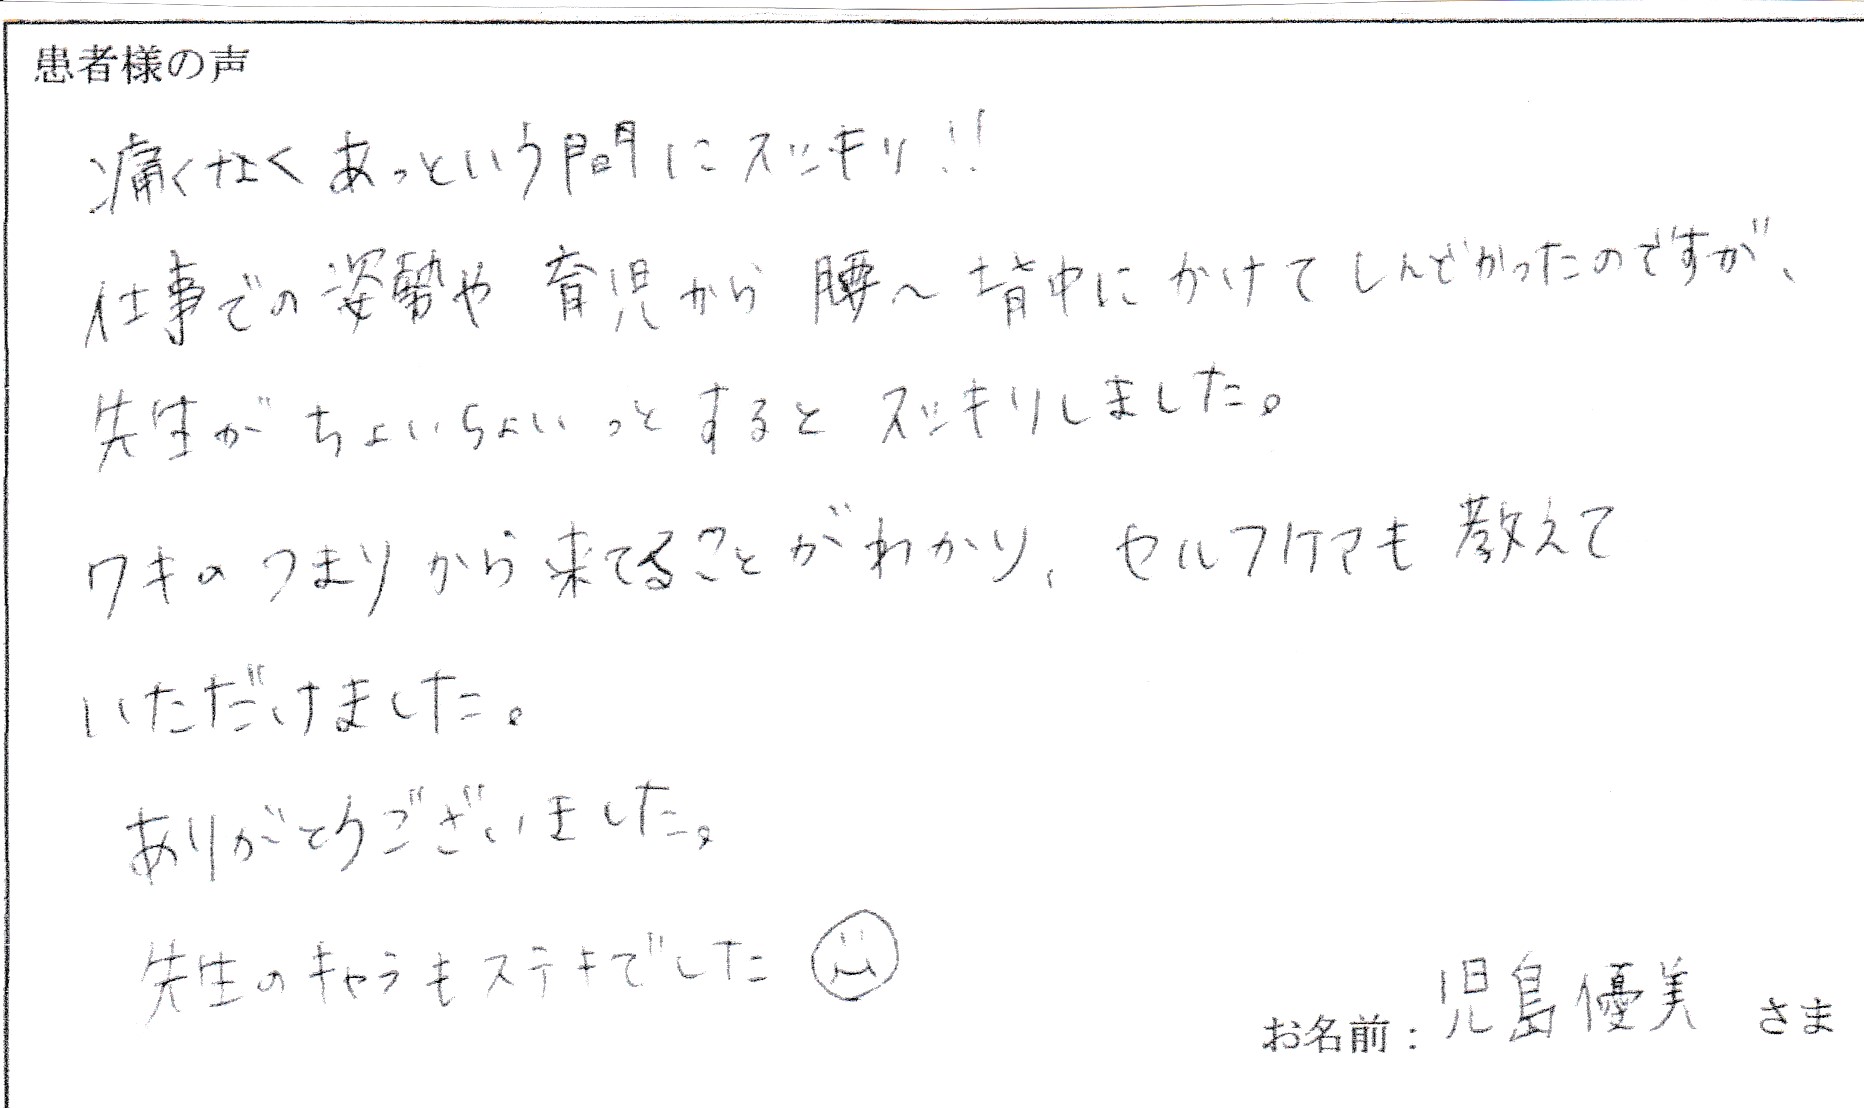 患者様の声
痛くなく あっという間にスッキリ!!
仕事での姿勢や 育児から 腰〜背中にかけてしんどかったのですが、
先生がちょいちょいっとするとスッキリしました。
ワキのつまりから来てることがわかり、セルフケアも教えて
いただけました。
ありがとうございました。
先生のキャラもステキでした
お名前: 児島優美 さま